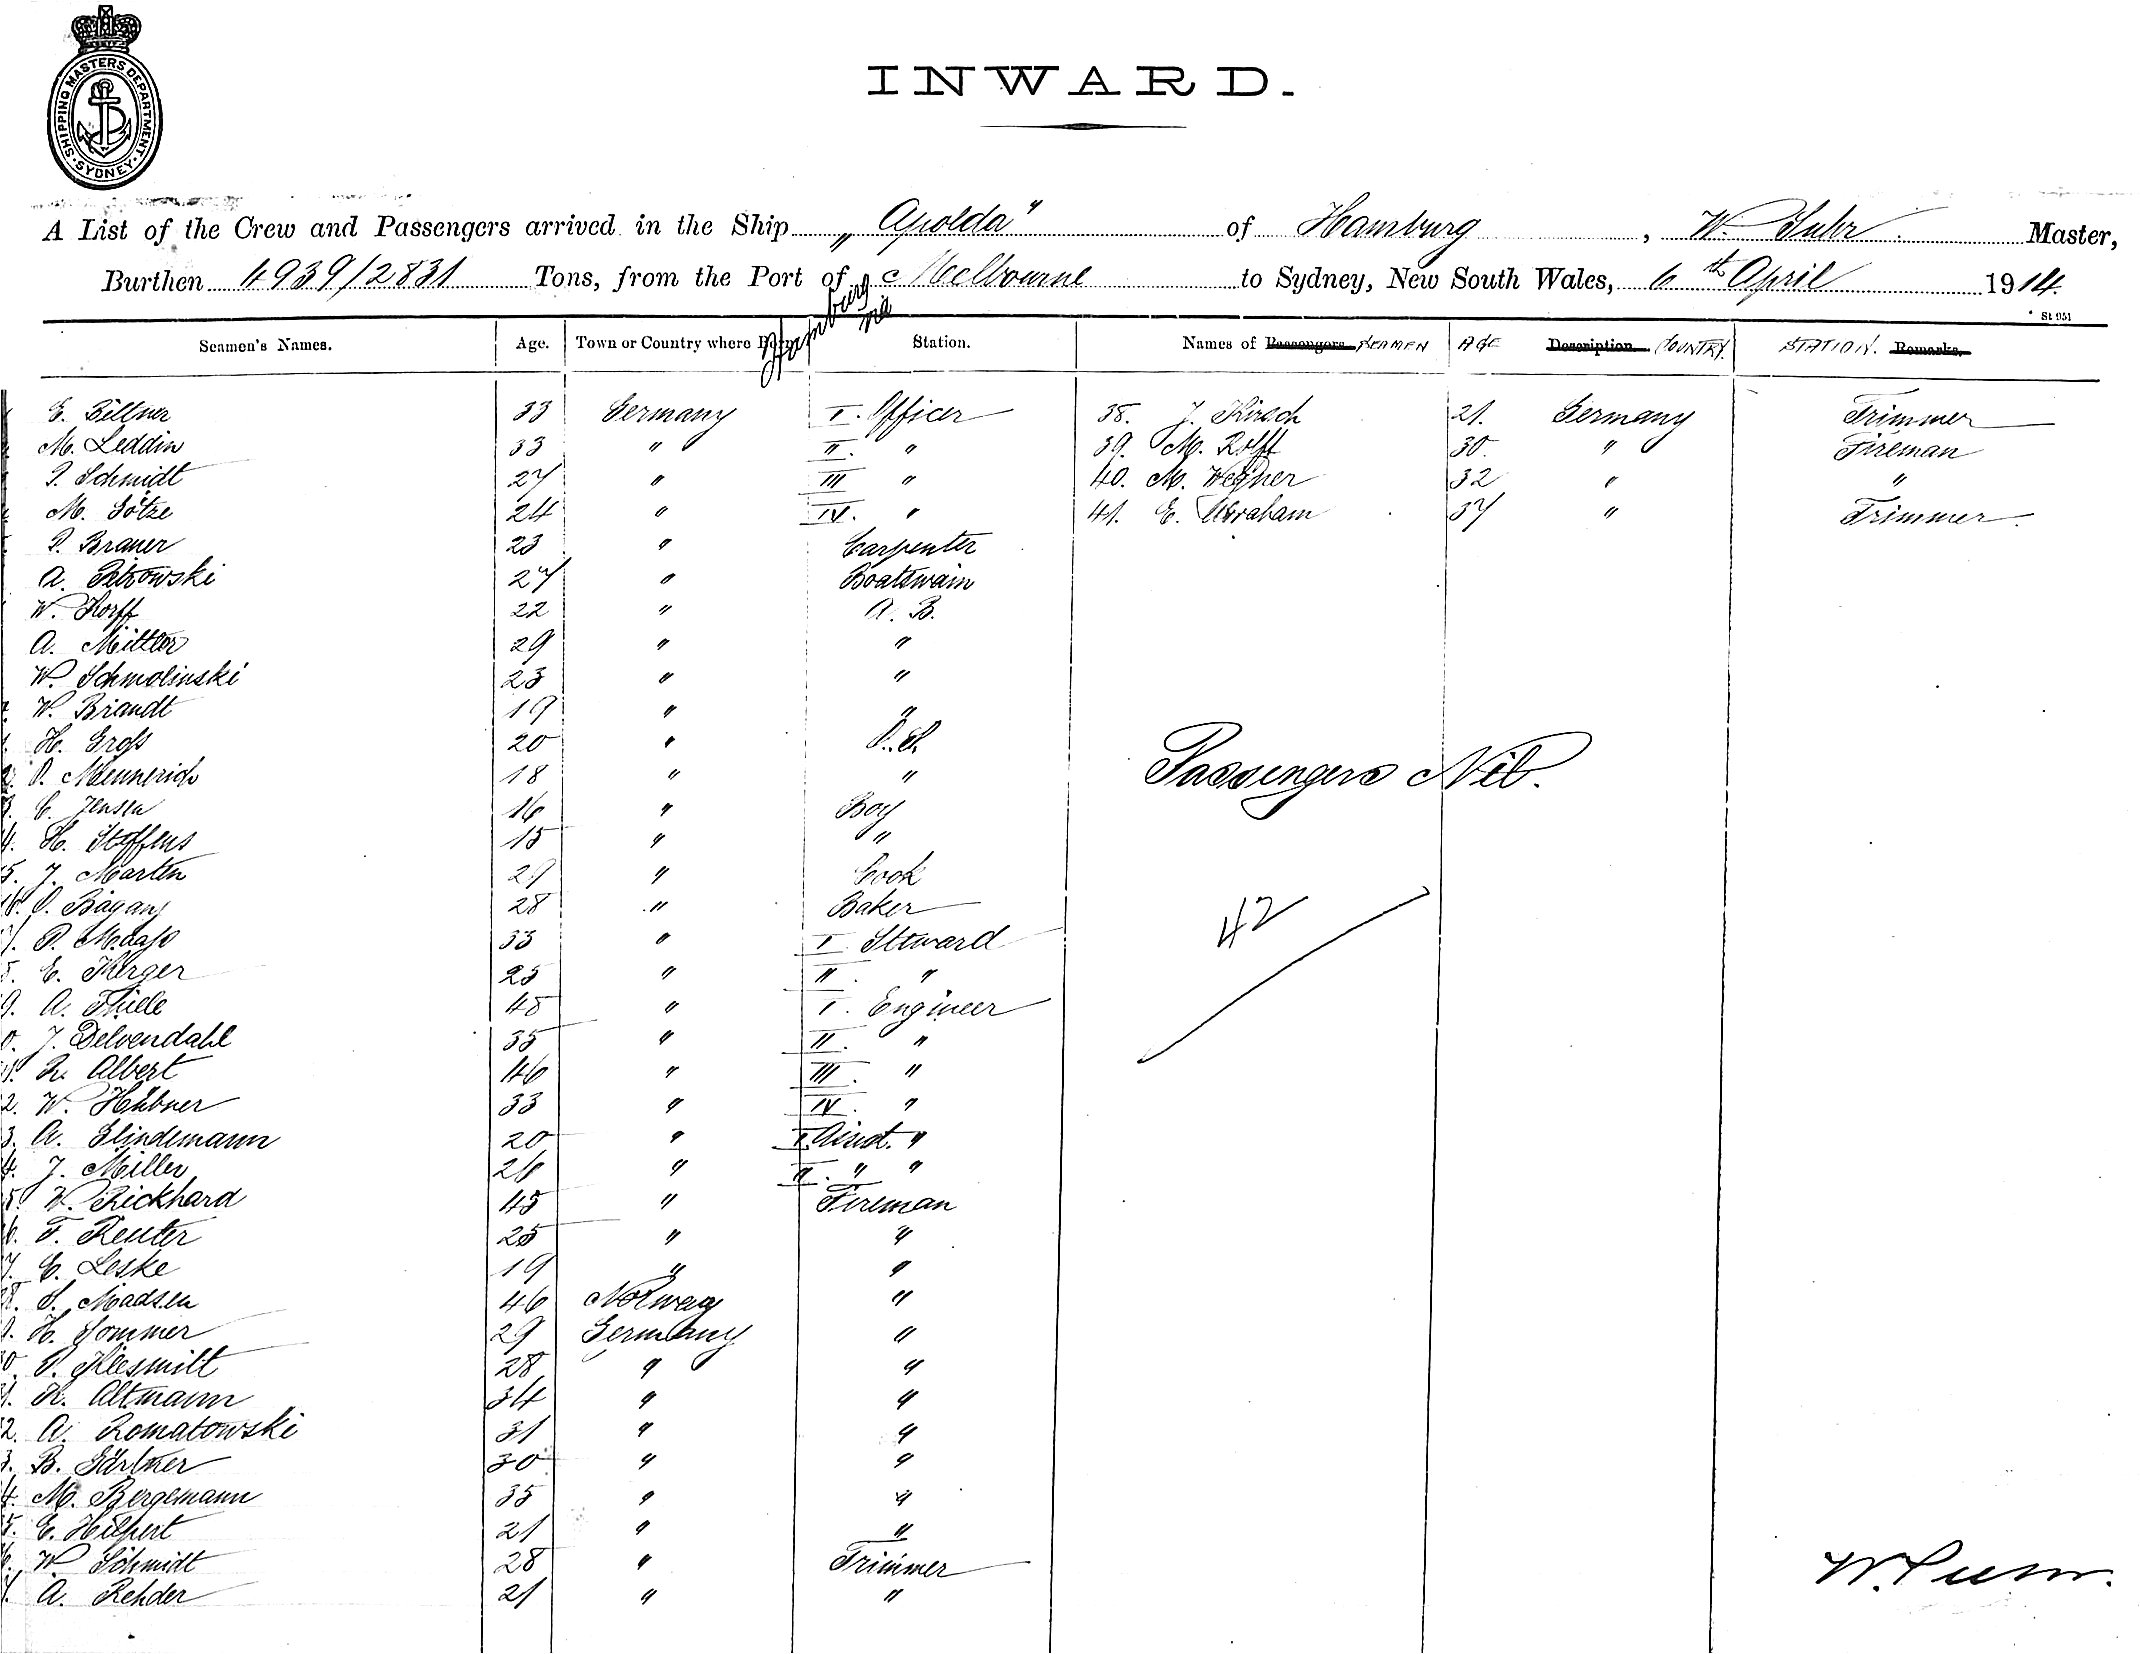 SHIPPING MASTERS DEPARTMENT. SYDNEY
INWARD.
A List of the Crew and Passengers arrived in the Ship „Apolda" of Hamburg, W. Suhr. Master,
Burthen 4939/2831 Tons, from the Port of Hamburg via Melbourne to Sydney, New South Wales, 6th April 1914.
St 951
Seamen's Names. Age. Town or Country where Born. Station. Names of Passengers SEAMEN AGE Description COUNTRY. STATION. Remarks.
E. Biltner 33 Germany I. Officer 38. J. Kirsch 21. Germany Trimmer
M. Leddin 33 " II. " 39. M. Rolff 30. " Fireman
P. Schmidt 27 " III " 40. M. Wegner 32 " "
M. Götze 24 " IV. " 41. E. Abraham 37 " Trimmer
P. Braner 23 " Carpenter
A. Petrowski 27 " Boatswain
W. Korff 22 " A. B.
A. Mittler 29 " "
W. Schmolinski 23 " "
W. Brandt 19 " "
H. Groß 20 " O. S.
P. Mennerich 18 " "
3. C. Jenssn 16 " Boy
4. H. Steffens 15 " "
5. J. Marten 29 " Cook
16. O. Bagany 28 " Baker
7. P. Maaß 33 " I Steward
8. E. Kerger 25 " II. "
9. A. Thiele 45 " I. Engineer
0. J. Delvendahl 35 " II. "
1. R. Albert 46 " III. "
2. W. Hübner 33 " IV. "
3. A. Glindemann 20 " I. Assist. "
4. J. Miller 26 " II. " "
5. W. Rickhard 45 " Fireman
6. F. Reuter 25 " "
7. E. Leske 19 " "
8. S. Madsen 46 Norway "
9. H. Sommer 29 Germany "
0. P. Kleesmitt 28 " "
1. R. Altmann 34 " "
2. A. Romatowski 31 " "
3. B. Gärtner 30 " "
4. M. Bergemann 35 " "
5. E. Hilpert 21 " "
6. W. Schmidt 28 " Trimmer
7. A. Rehder 21 " "
Passengers Nil.
42
W. Suhr.